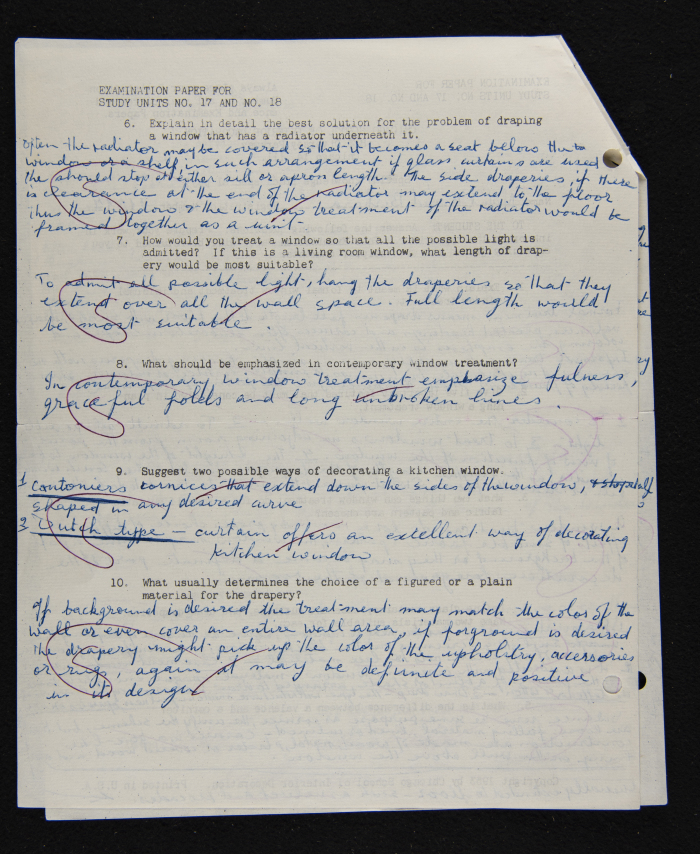 EXAMINATION PAPER FOR
STUDY UNITS NO. 17 AND NO. 18
6. Explain in detail the best solution for the problem of draping
a window that has a radiator underneath it.
Often the radiator may be covered so that it becomes a seat below the
window or a shelf, in such arrangement if glass curtains are used
the should stop at either sill or apron length. The side draperies, if there
is clearance at the end of the radiator may extend to the floor
thus the window & the window treatment of the radiator would be
framed together as a unit-
7. How would you treat a window so that all the possible light is
admitted? If this is a living room window, what length of drap-
ery would be most suitable?
To admit all possible light, hang the draperies so that they
extend over all the wall space. Full length would
be most suitable.
8. What should be emphasized in contemporary window treatment?
In contemporary window treatment emphasize fulness,
graceful folds and long unbroken lines.
9. Suggest two possible ways of decorating a kitchen window.
1 Contoniers cornices that extend down the sides of the window,
shaped in any desired curve
2 Dutch type - curtain offers an excellent way of decorating
kitchen window
10. What usually determines the choice of a figured or a plain
material for the drapery?
If background is desired the treatment may match the color of the
wall or even cover an entire wall area, if forground is desired
the drapery might pick up the color of the upholstry, accessories
or rugs, again it may be definite and positive
in its design